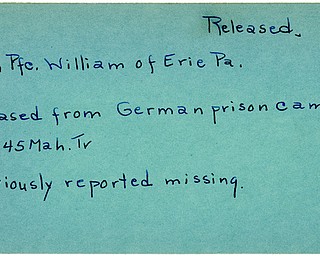 Released.
, Pfc. William of Erie Pa.
ased from German prison cam
45 Mah. Tr
iously reported missing.